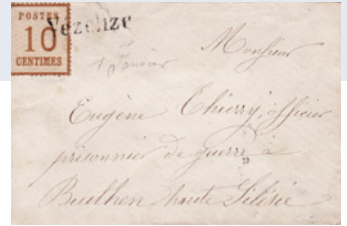 POSTES
10
CENTIMES
Vézelize
Monsieur
1 Janvier
Eugène Thierry, officier
prisonnier de guerre à
Beuthen haute Silésie